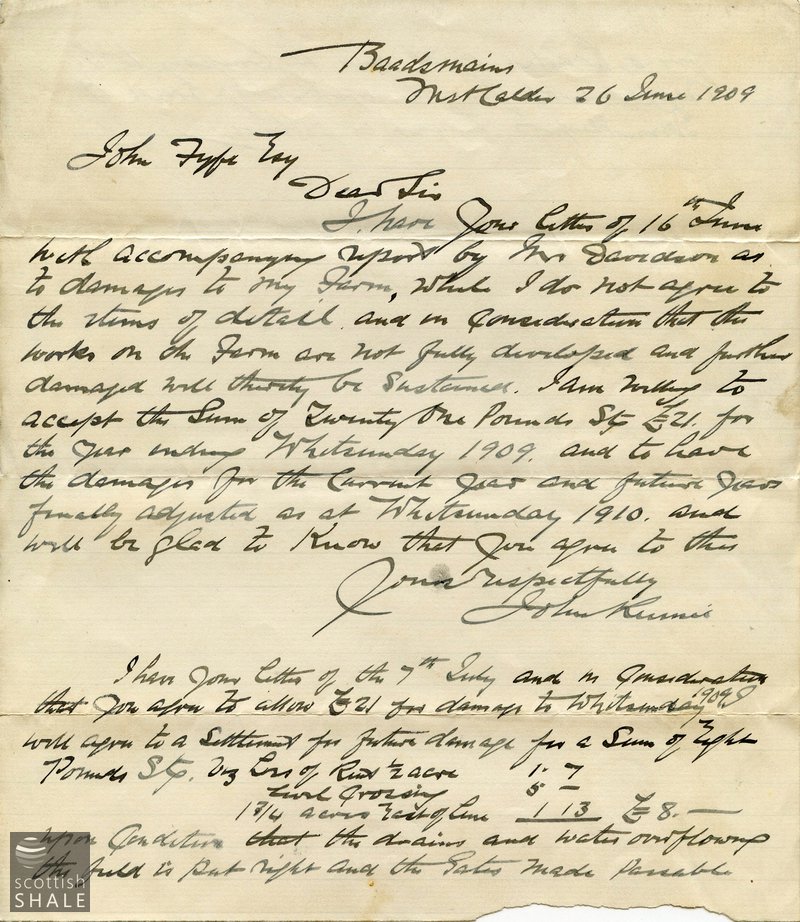 Baadsmains
West Calder 26 June 1909
John Fyfe Esq
Dear Sir
I have your letter of 16th June
with accompanying report by Mr Davidson as
to damages to my Farm, while I do not agree to
the items of detail, and in Consideration that the
works on the Farm are not fully developed and further
damaged will thereby be Sustained. I am willing to
accept the Sum of Twenty One Pounds Stg £21. for
the year ending Whitsunday 1909. and to have
the damages for the Current year and future years
finally adjusted as at Whitsunday 1910. and
will be glad to Know that you agree to this
Yours respectfully
John Rennie
I have your letter of the 7th July and in Consideration
that you agree to allow £21 for damage to Whitsunday 1909 I
will agree to a Settlement for future damage for a Sum of Eight
Pounds Stg. Viz Loss of Rent ½ acre 1. 7
Level Crossing 5 —
1 3/4 acres East of Line 1 13 £8. —
upon Condition that the drains and water overflowing
the field is put right and the Gates made Passable
scottish
SHALE